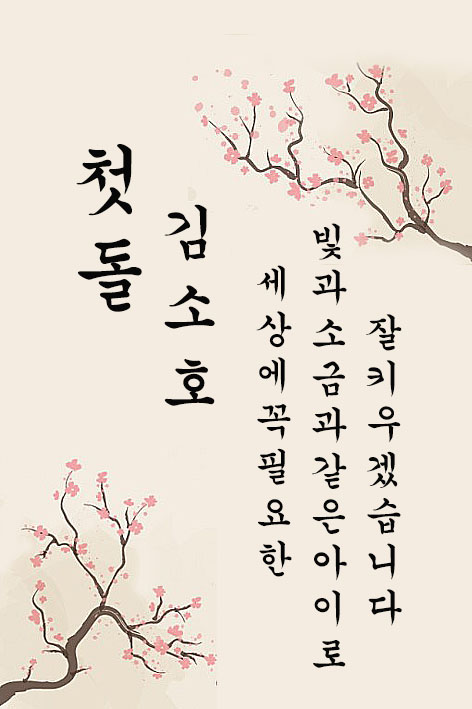 첫돌
김소호
세상에꼭필요한
빛과소금과같은아이로
잘키우겠습니다